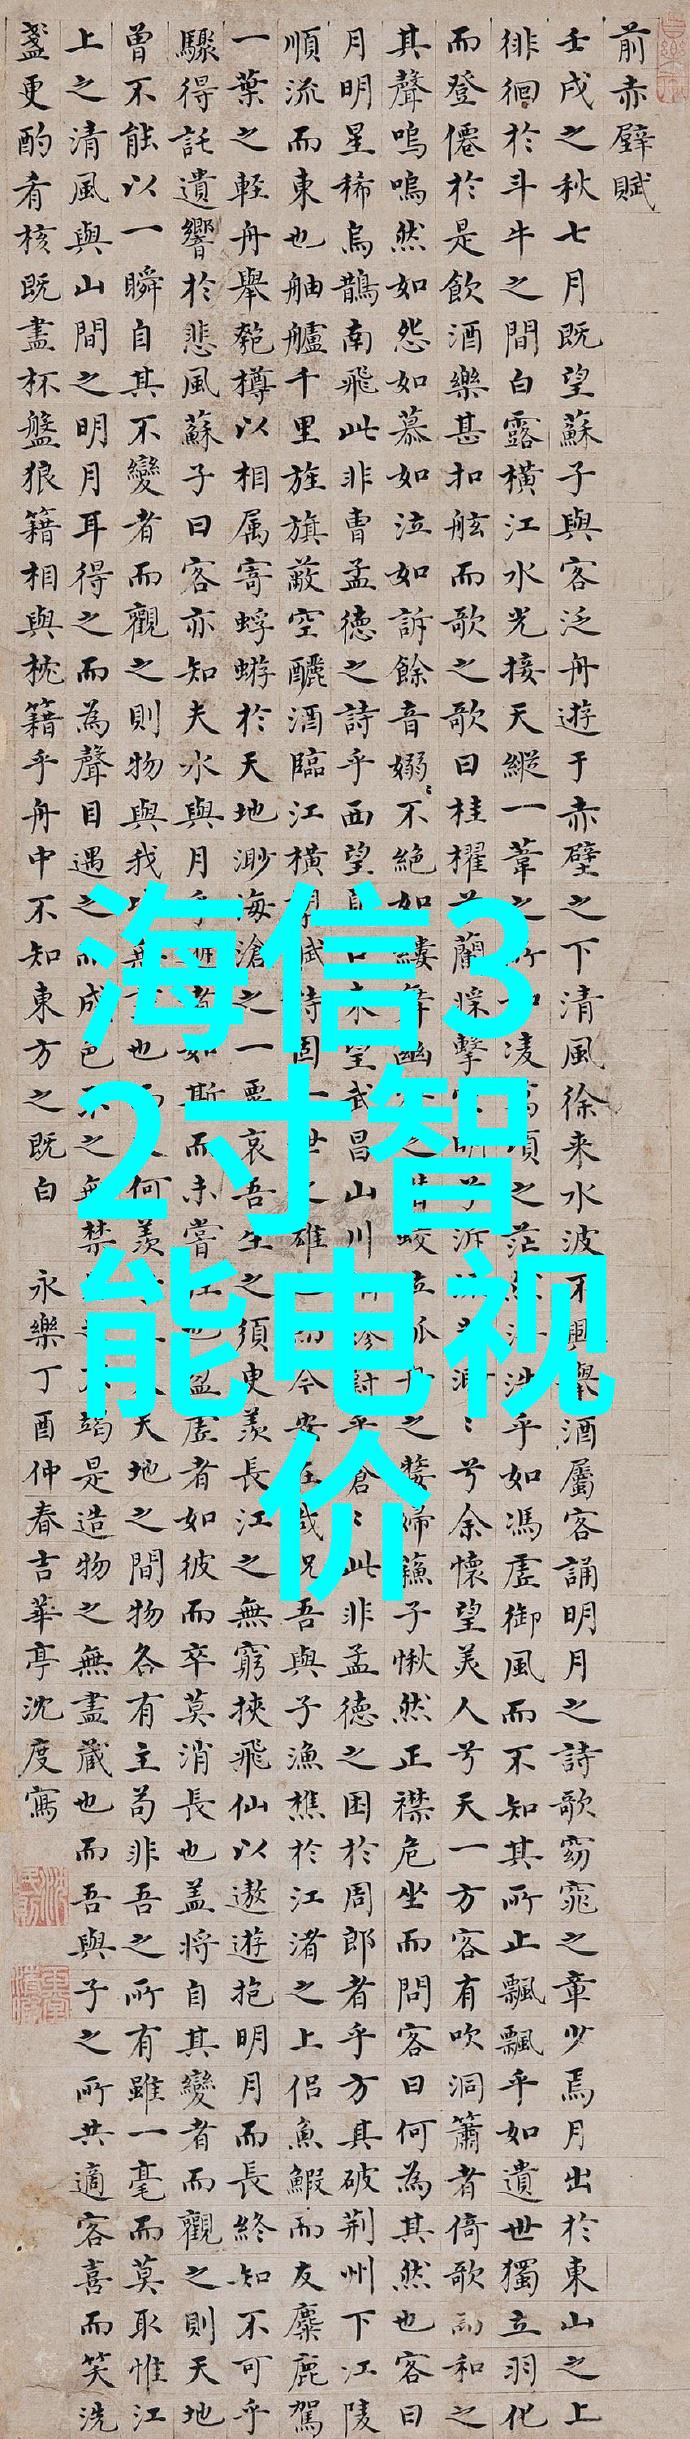 前赤壁賦
壬戌之秋七月既望蘇子與客泛舟遊于赤壁之下清風徐来水波不興舉酒屬客誦明月之詩歌窈窕之章少焉月出於東山之上
徘徊於斗牛之間白露橫江水光接天縱一葦之所如凌萬頃之茫然浩浩乎如馮虛御風而不知其所止飄飄乎如遺世獨立羽化
而登僊於是飲酒樂甚扣舷而歌之歌曰桂櫂兮蘭槳擊空明兮泝流光渺〻兮余懷望美人兮天一方客有吹洞簫者倚歌而和之
其聲嗚嗚然如怨如慕如泣如訴餘音嫋〻不絕如縷舞幽之潛蛟泣孤舟之嫠婦蘇子愀然正襟危坐而問客曰何為其然也客曰
月明星稀烏鵲南飛此非曹孟德之詩乎西望夏口東望武昌山川相繆鬱乎蒼〻此非孟德之困於周郎者乎方其破荆州下江陵
順流而東也舳艫千里旌旗蔽空釃酒臨江橫槊賦詩固一世之雄也而今安在哉況吾與子漁樵於江渚之上侶魚鰕而友麋鹿駕
一葉之輕舟舉匏樽以相属寄蜉蝣於天地渺海滄之一粟哀吾生之須臾羨長江之無窮挾飛仙以遨遊抱明月而長終知不可乎
驟得託遺響於悲風蘇子曰客亦知夫水與月乎逝者如斯而未嘗往也盈虛者如彼而卒莫消長也盖將自其變者而觀之則天地
曾不能以一瞬自其不變者而觀之則物與我皆無盡也而又何羨天地之間物各有主苟非吾之所有雖一毫而莫取惟江
上之清風與山間之明月耳得之而為聲目遇之而成色取之無禁用之不竭是造物之無盡藏也而吾與子之所共適客喜而笑洗
盞更酌肴核既盡杯盤狼籍相與枕籍乎舟中不知東方之既白 永樂丁酉仲春吉華亭沈度寫
海信3
2寸智
能电视
价